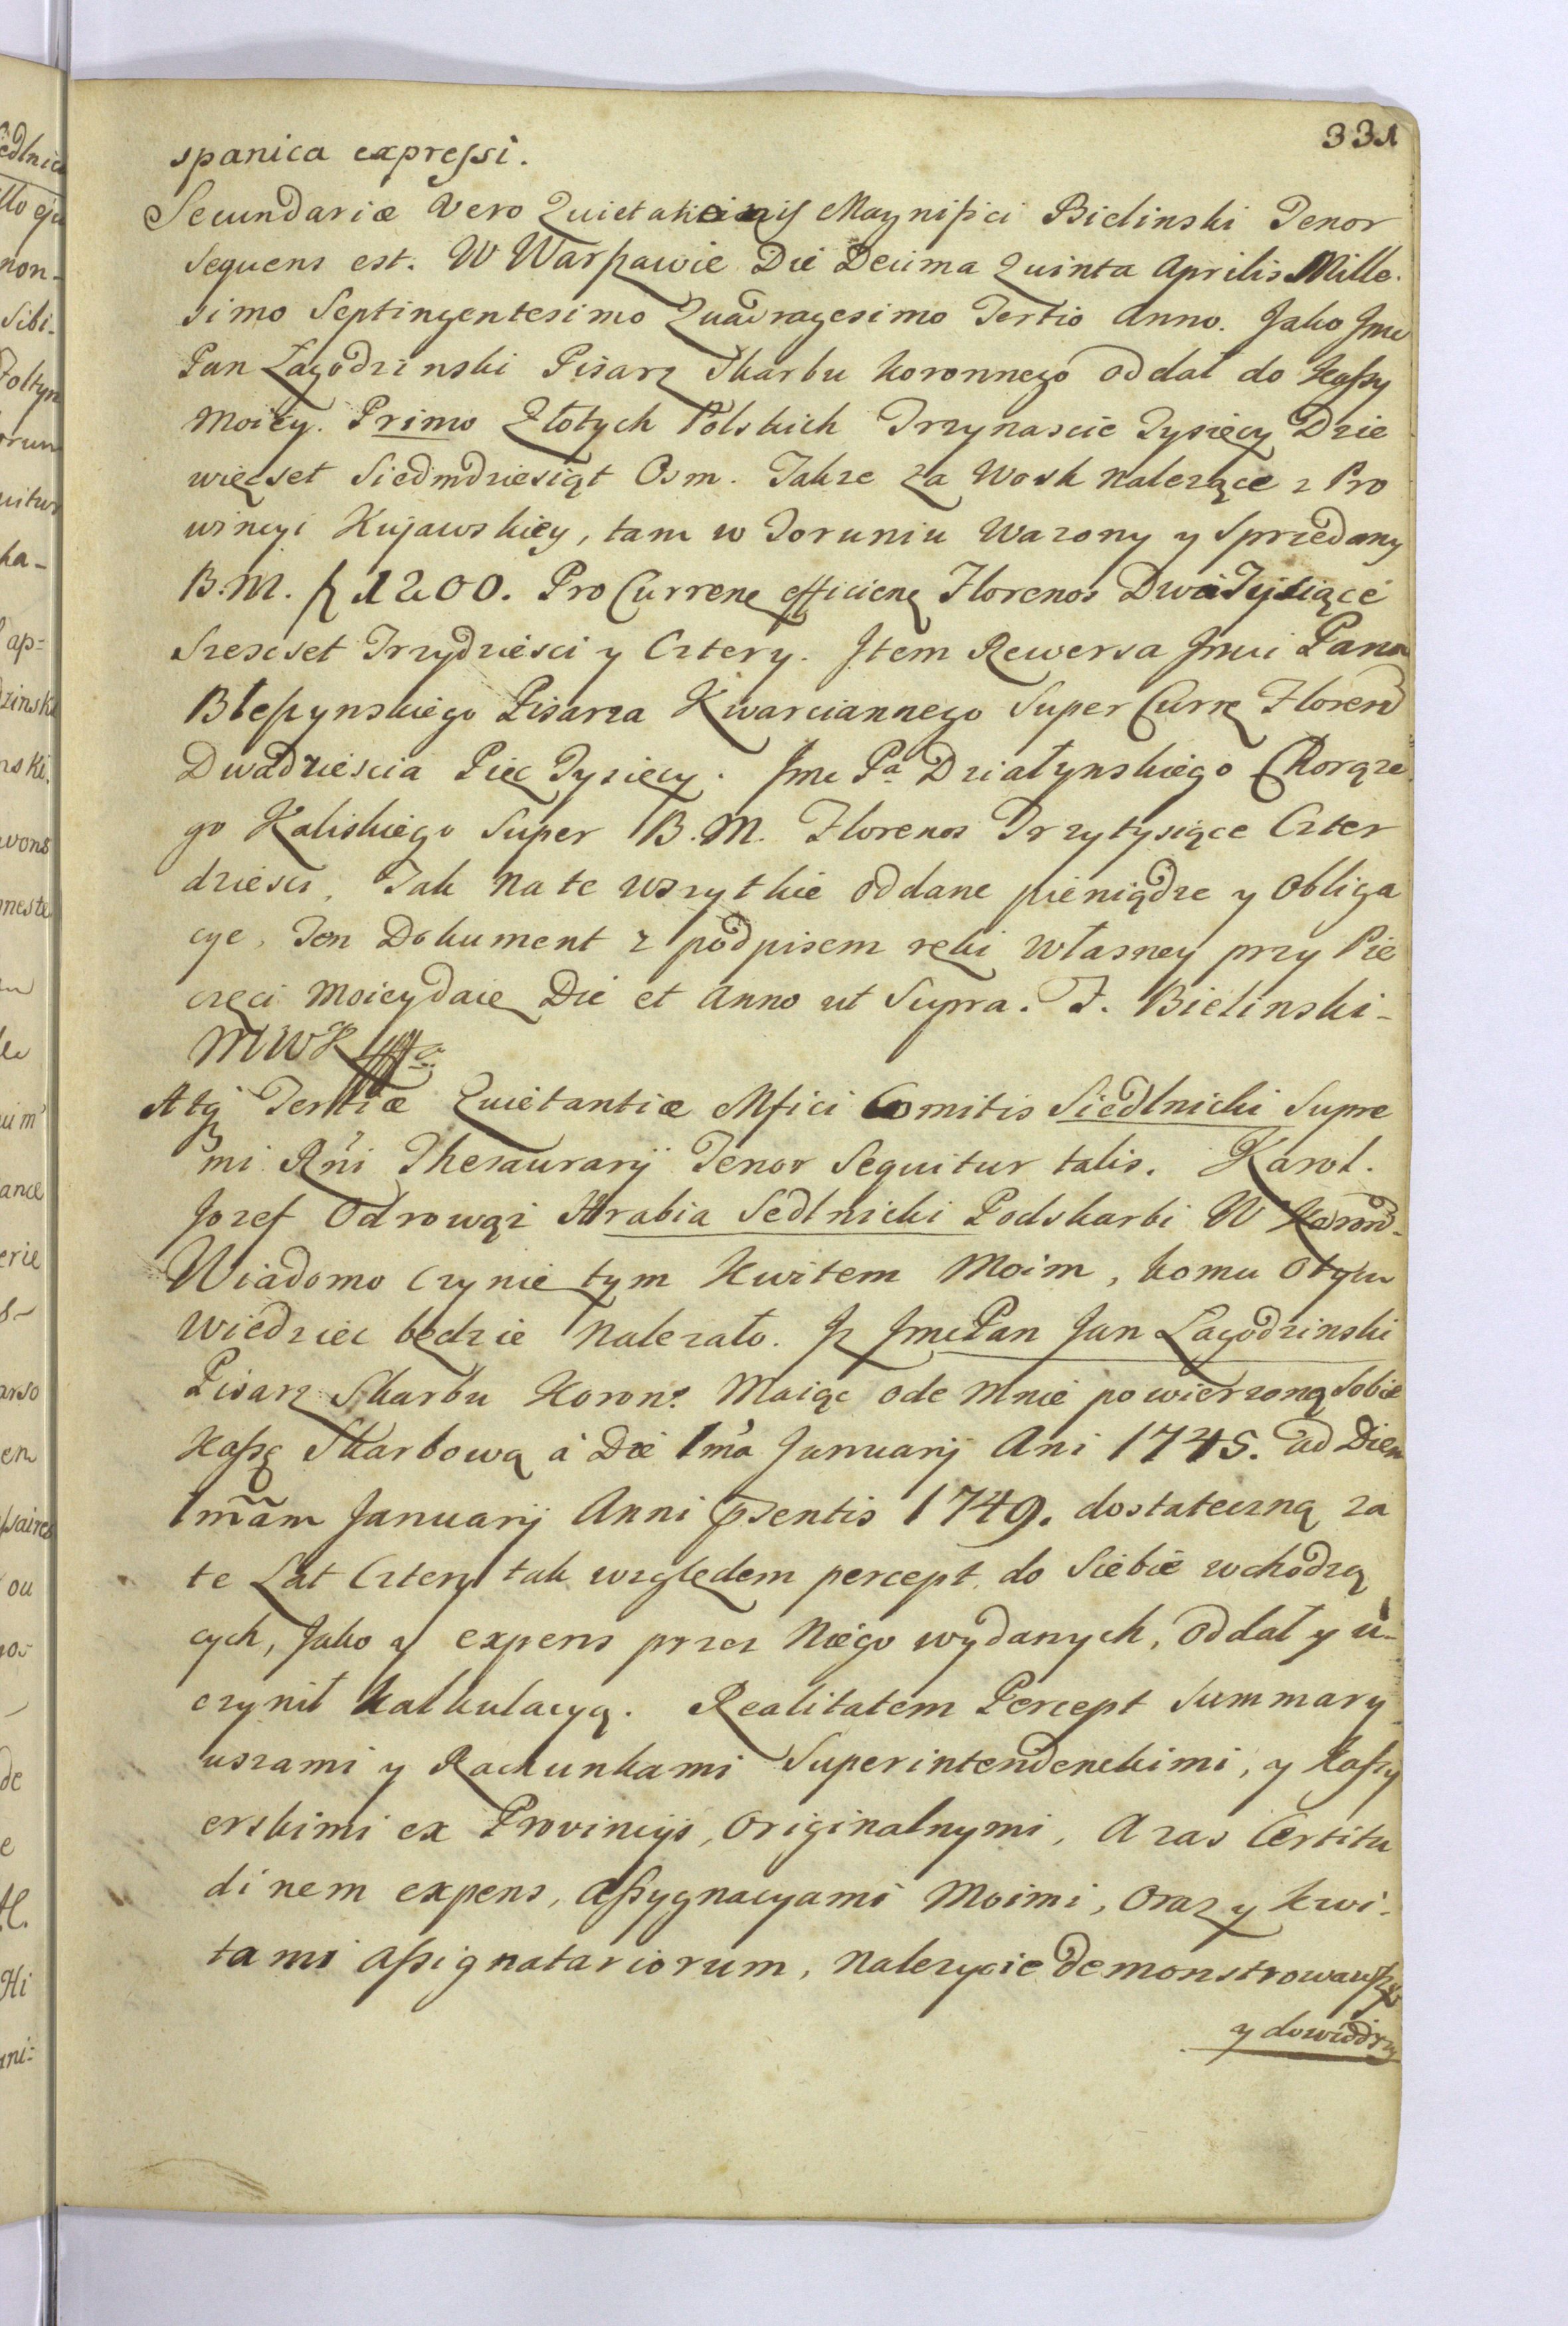 331
spanica expressi.
Secundariæ Vero Quietationis Magnifici Bielinski Tenor
Sequens est. W Warszawie Die Decima Quinta Aprilis Mille-
simo Septingentesimo Quadragesimo Tertio Anno. Jako Jmc
Pan Łagodzinski Pisarz Skarbu Koronnego oddał do Kassy
Moiey. Primo Złotych Polskich Trzynascie Tysięcy Dzie
więcset Siedmdziesiąt Osm. Takze za Wosk nalezące z Pro
wincyi Kujawskiey, tam w Toruniu Wazony y Sprzedany
B.M. f 1200. Pro Curren efficien Florenos Dwa Tysiące
Szescset Trzydziesci y Cztery. Item Rewersa Jmci Pana
Błeszynskiego Pisarza Kwarciannego Super Curr Floren
Dwadziescia Pięc Tysięcy. Jmc Pa Działynskiego Chorąze
go Kaliskiego Super B.M. Florenos Trzytysiące Czter
dziesci. Tak na te wszytkie oddane pieniądze y Obliga
cye, Ten Dokument z podpisem ręki własney przy Pie
częci moiey daię Die et Anno ut Supra. F. Bielinski-
MWK
Atq Tertiæ Quietantiæ Mfici Comitis Siedlnicki Supre
mi Rni Thesaurarij Tenor Sequitur talis. Karol.
Jozef Odrowąz Hrabia Sedlnicki Podskarbi W Koron-
Wiadomo czynie tym Kwitem Moim, komu o tym
Wiedziec będzie nalezało. Iz Jmc Pan Jan Łagodzinski
Pisarz Skarbu Koron: Maiąc ode mnie powierzoną Sobie
Kassę Skarbową á Die 1ma Januarij Ani 1745. ad Diem
1mam Januarij Anni psentis 1749. dostateczną za
te Lat Cztery tak względem percept do siebie wchodzą
cych, Jako y expens przez Niego wydanych, oddał y u-
czynił kalkulacyą. Realitatem Percept Summary-
uszami y Rachunkami Superintendenckimi, y Kassy
erskimi ex Provincijs, Originalnymi, A zas Certitu
dinem expens, assygnacyami Moimi, Oraz y kwi-
tami assignatariorum, nalezycie demonstrowawszy
y dowiodszy